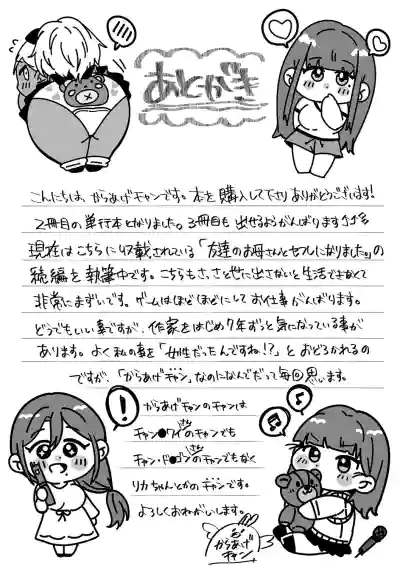 あとがき
こんにちは、からあげチャンです。本を購入して下さりありがとうございます!
2冊目の単行本となりました。3冊目も出せるようがんばります
現在はこちらに収載されている「友達のお母さんとセフレになりました。」の
続編を執筆中です。こちらもさっさと世に出さないと生活できなくて
非常にまずいです。ゲームはほどほどにしてお仕事がんばります。
どうでもいい事ですが、作家をはじめ7年ずっと気になっている事が
あります。よく私の事を「女性だったんですね!?」とおどろかれるの
ですが、「からあげチャン」なのになんでだって毎回思います。
からあげチャンのチャンは
チャン●ワイさんのチャンでも
チャン・ド●ゴンさんのチャンでもなく
リカちゃんとかのチャンです。
よろしくおねがいします。
からあげ
チャン